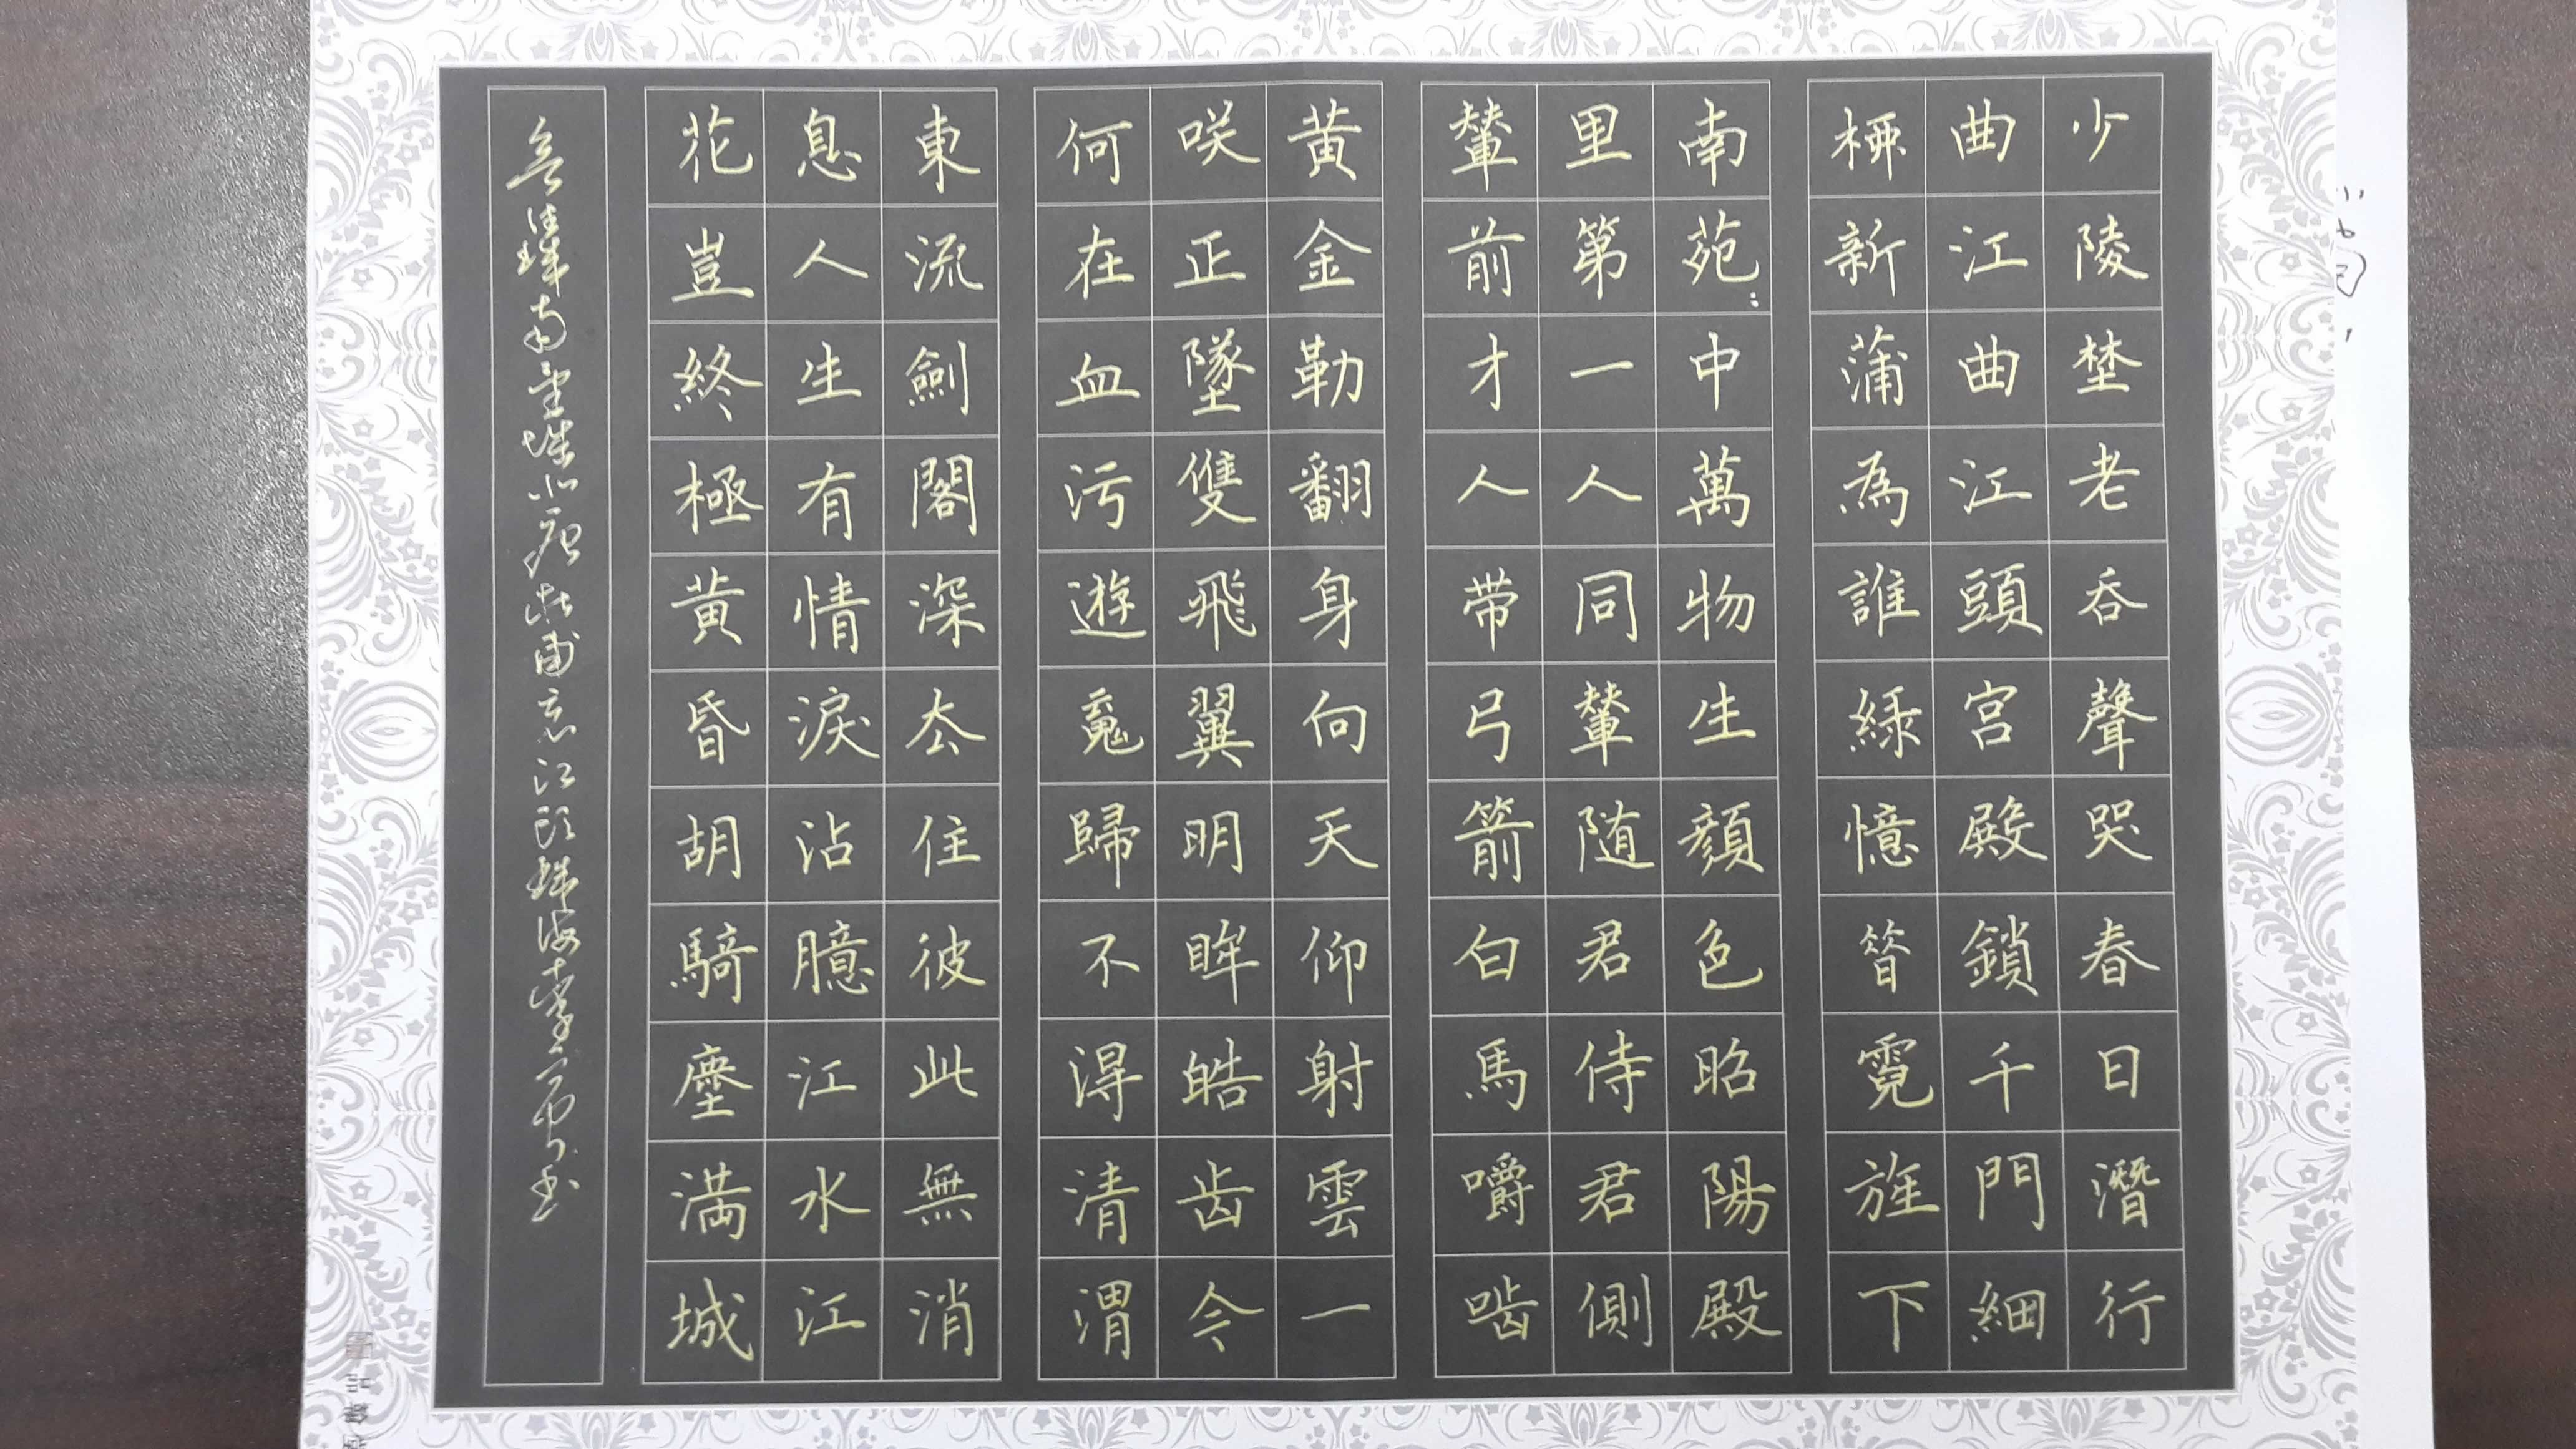 少陵埜老吞聲哭春日潛行
曲江曲江頭宮殿鎖千門細
栁新蒲為誰緑憶昝霓旌下
南苑中萬物生顔色昭陽殿
里第一人同輦随君侍君側
輦前才人带弓箭白馬嚼啮
黄金勒翻身向天仰射雲一
咲正墜雙飛翼明眸皓齿今
何在血污遊魂歸不得清渭
東流劍閣深去住彼此無消
息人生有情淚沾臆江水江
花豈終極黄昏胡騎塵满城
南望城北唐杜甫哀江頭珠海李書